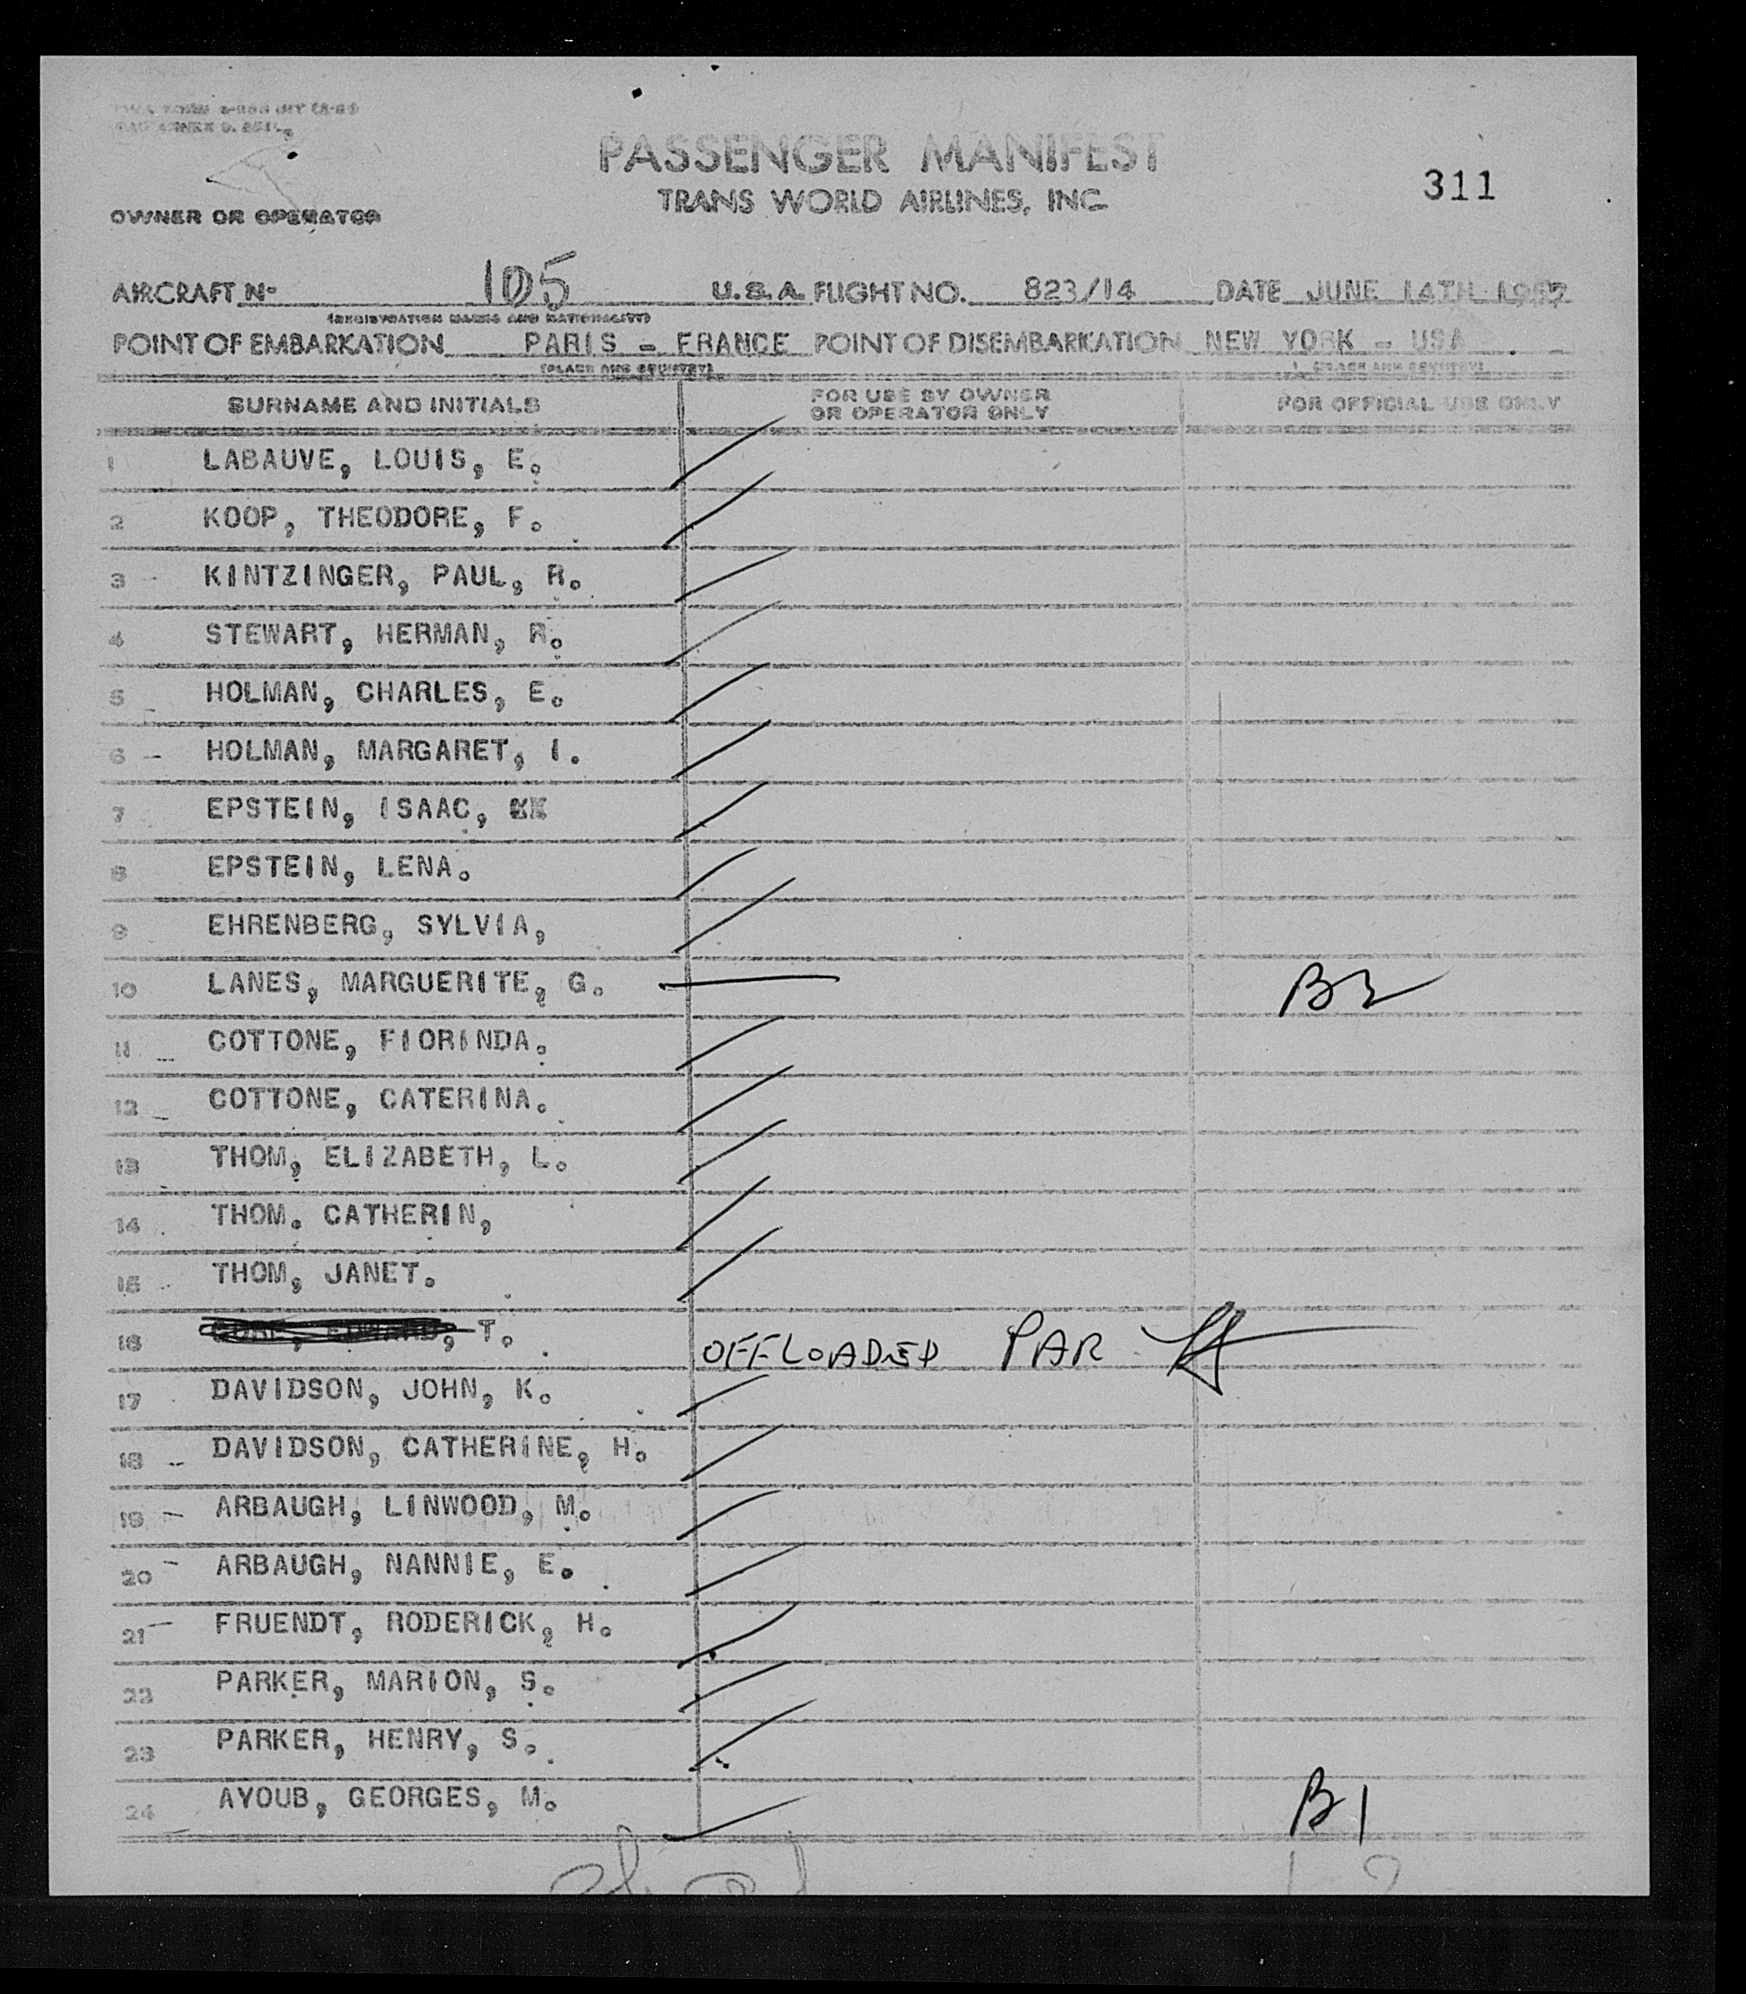 PASSENGER MANIFEST
TRANS WORLD AIRLINES, INC
311
OWNER OR OPERATOR
AIRCRAFT Nº 105 U.S.A. FLIGHT NO. 823/14 DATE JUNE 14TH 1957
(REGISTRATION MARKS AND NATIONALITY)
POINT OF EMBARKATION PARIS - FRANCE POINT OF DISEMBARKATION NEW YORK - USA
(PLACE AND COUNTRY) (PLACE AND COUNTRY)
SURNAME AND INITIALS FOR USE BY OWNER OR OPERATOR ONLY FOR OFFICIAL USE ONLY
1 LABAUVE, LOUIS, E.
2 KOOP, THEODORE, F.
3 - KINTZINGER, PAUL, R.
4 STEWART, HERMAN, R.
5 - HOLMAN, CHARLES, E.
6 - HOLMAN, MARGARET, I.
7 EPSTEIN, ISAAC,
8 EPSTEIN, LENA.
9 EHRENBERG, SYLVIA,
10 LANES, MARGUERITE, G. B2
11 - COTTONE, FIORINDA.
12 - COTTONE, CATERINA.
13 THOM, ELIZABETH, L.
14 THOM. CATHERIN,
15 THOM, JANET.
16 EDWARD, T. OFFLOADED PAR
17 DAVIDSON, JOHN, K.
18 - DAVIDSON, CATHERINE, H.
19 - ARBAUGH, LINWOOD, M.
20 - ARBAUGH, NANNIE, E.
21 - FRUENDT, RODERICK, H.
22 PARKER, MARION, S.
23 PARKER, HENRY, S.
24 AYOUB, GEORGES, M. B1